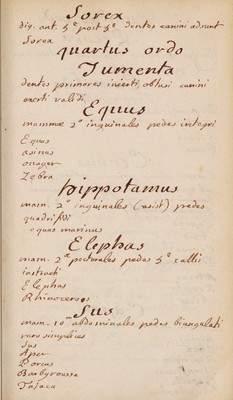 Sorex
dig. ant. 5 post 5 dentes canini adsunt
Sorex
quartus ordo
Jumenta
dentes primores inerti, obtusi canini
exerti validi
Equus
mammae 2 inguinales pedes integri
Equus
asinus
onager
Zebra
hippotamus
mam. 2 inguinales (arist) pedes
quadrifidi
equus marinus
Elephas
mam. 2 pectorales pedes 5 callis
instructi
Elephas
Rhinoceros
Sus
mam. 10 abdominales pedes biungulati
simplices
Sus
Aper
Porcus
Barbyroussa
Tajacu